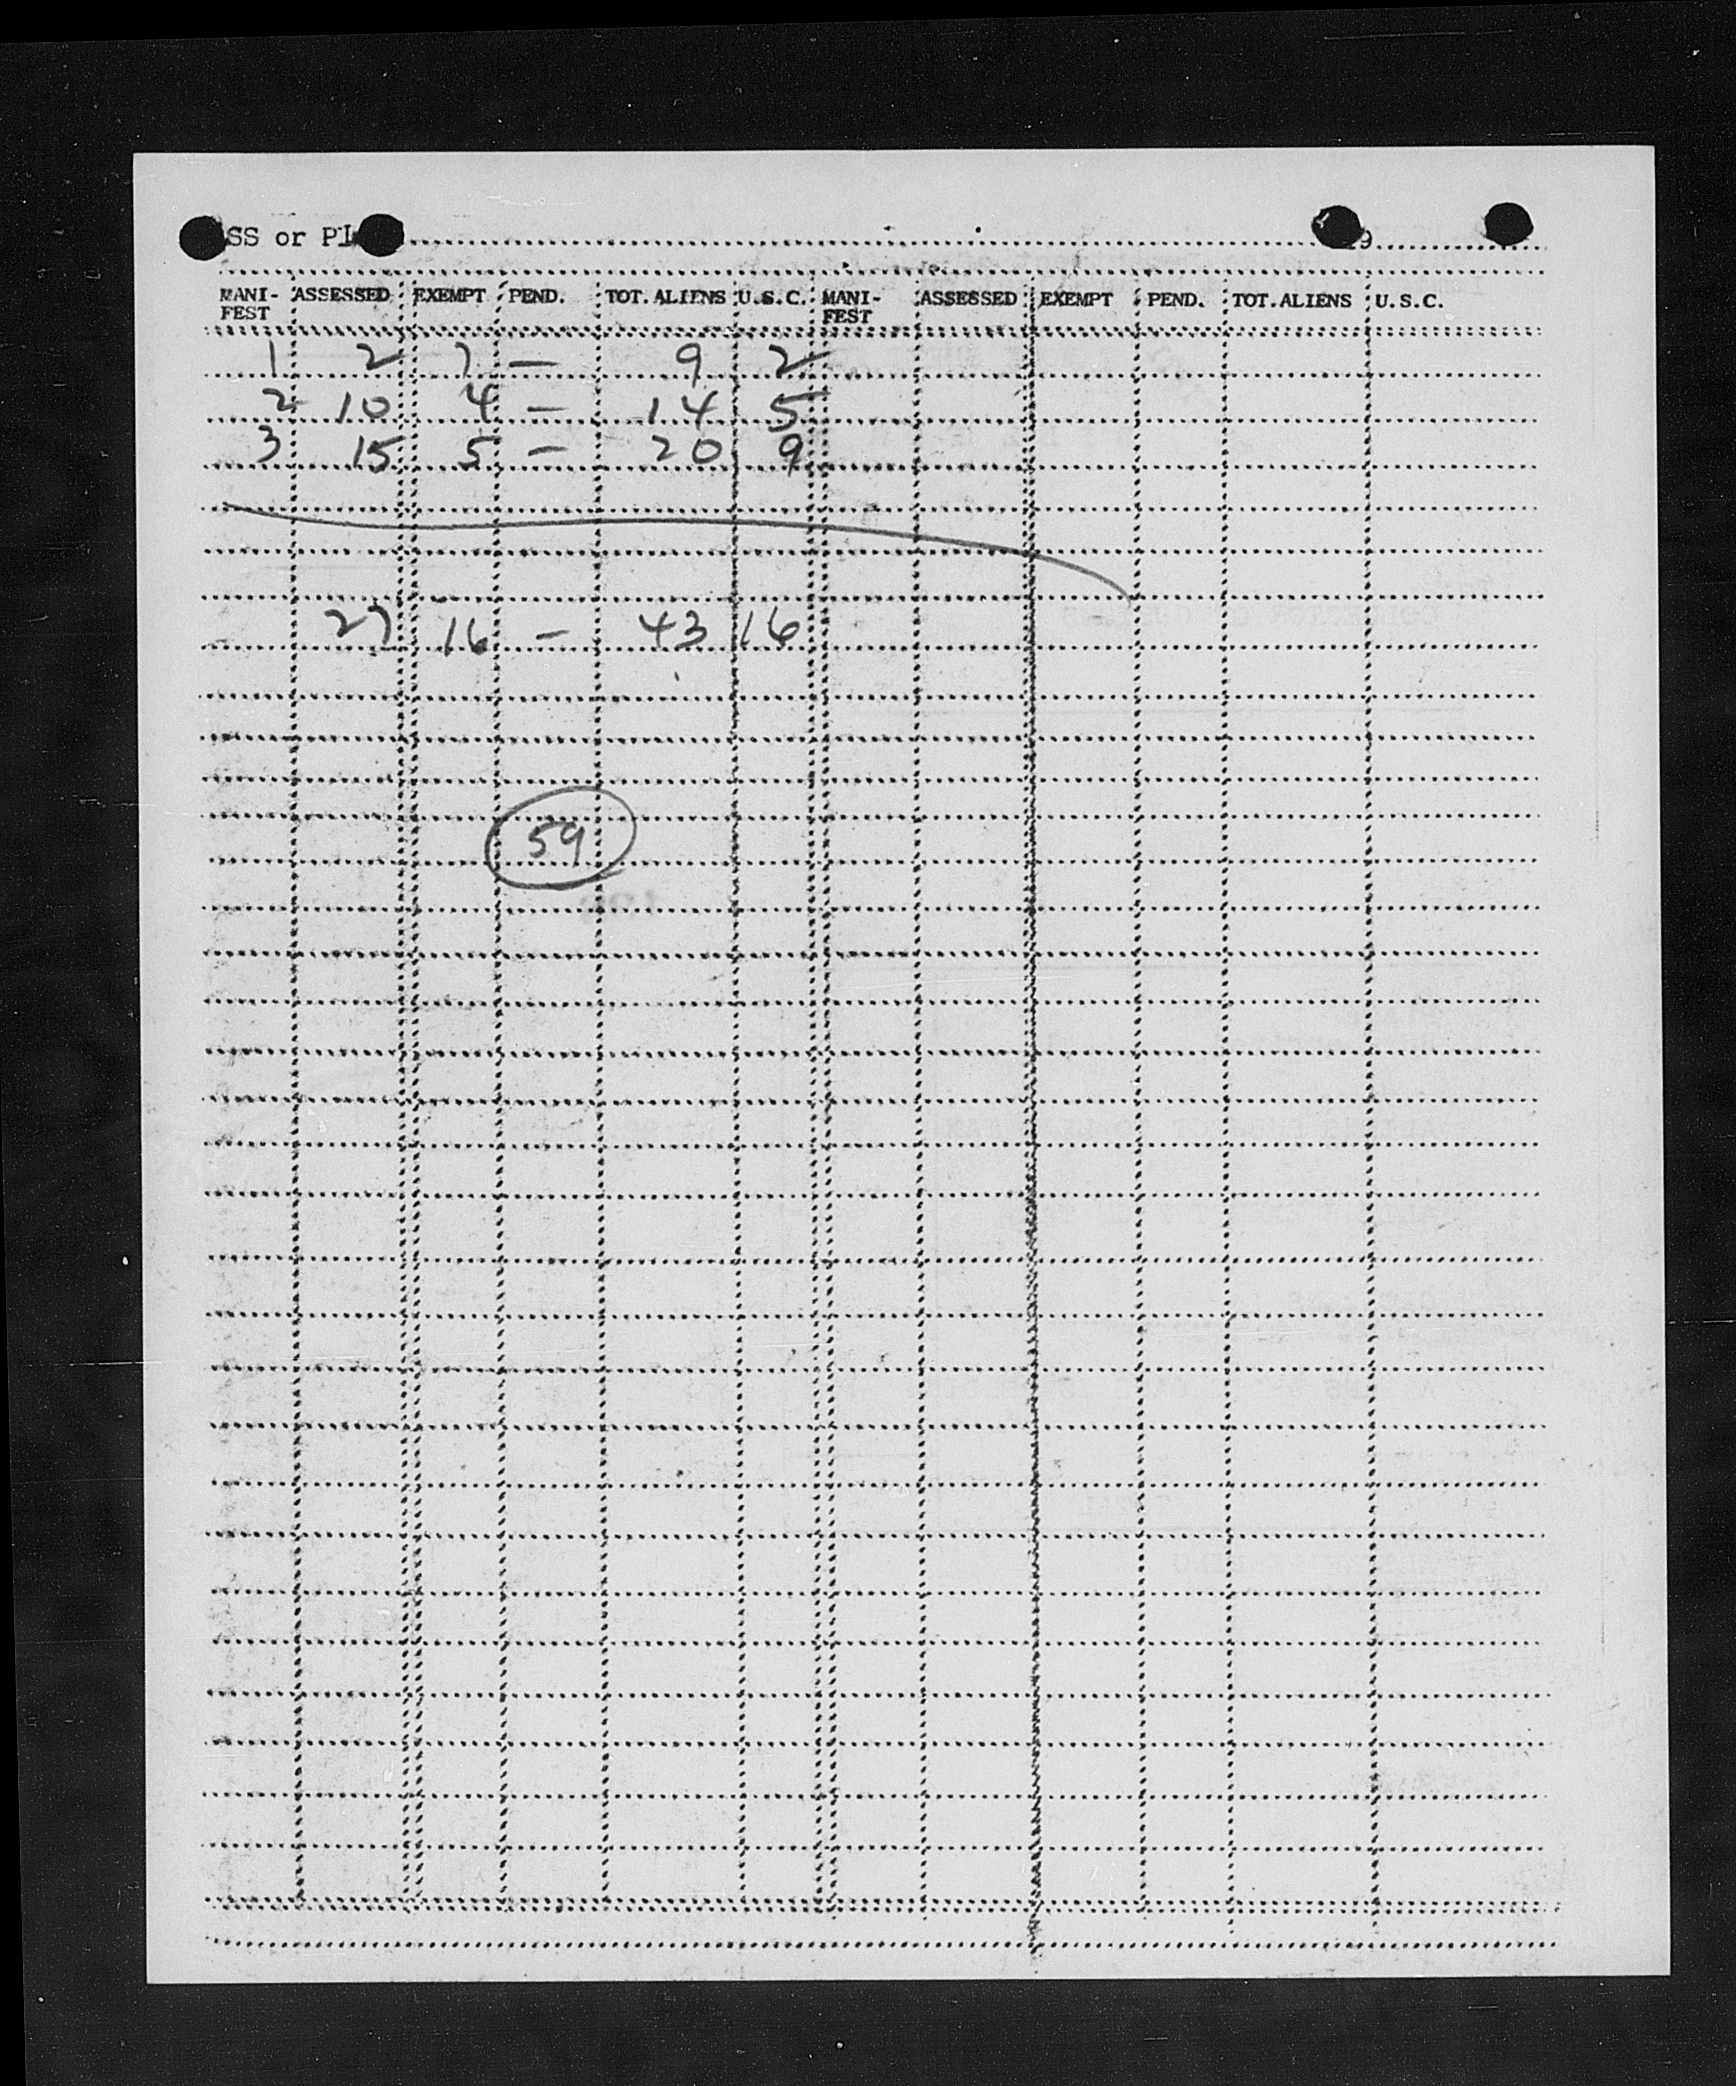 SS or PL 9
MANI-FEST ASSESSED EXEMPT PEND. TOT. ALIENS U.S.C. MANI-FEST ASSESSED EXEMPT PEND. TOT. ALIENS U.S.C.
1 2 7 — 9 2
2 10 4 — 14 5
3 15 5 — 20 9
27 16 — 43 16
59